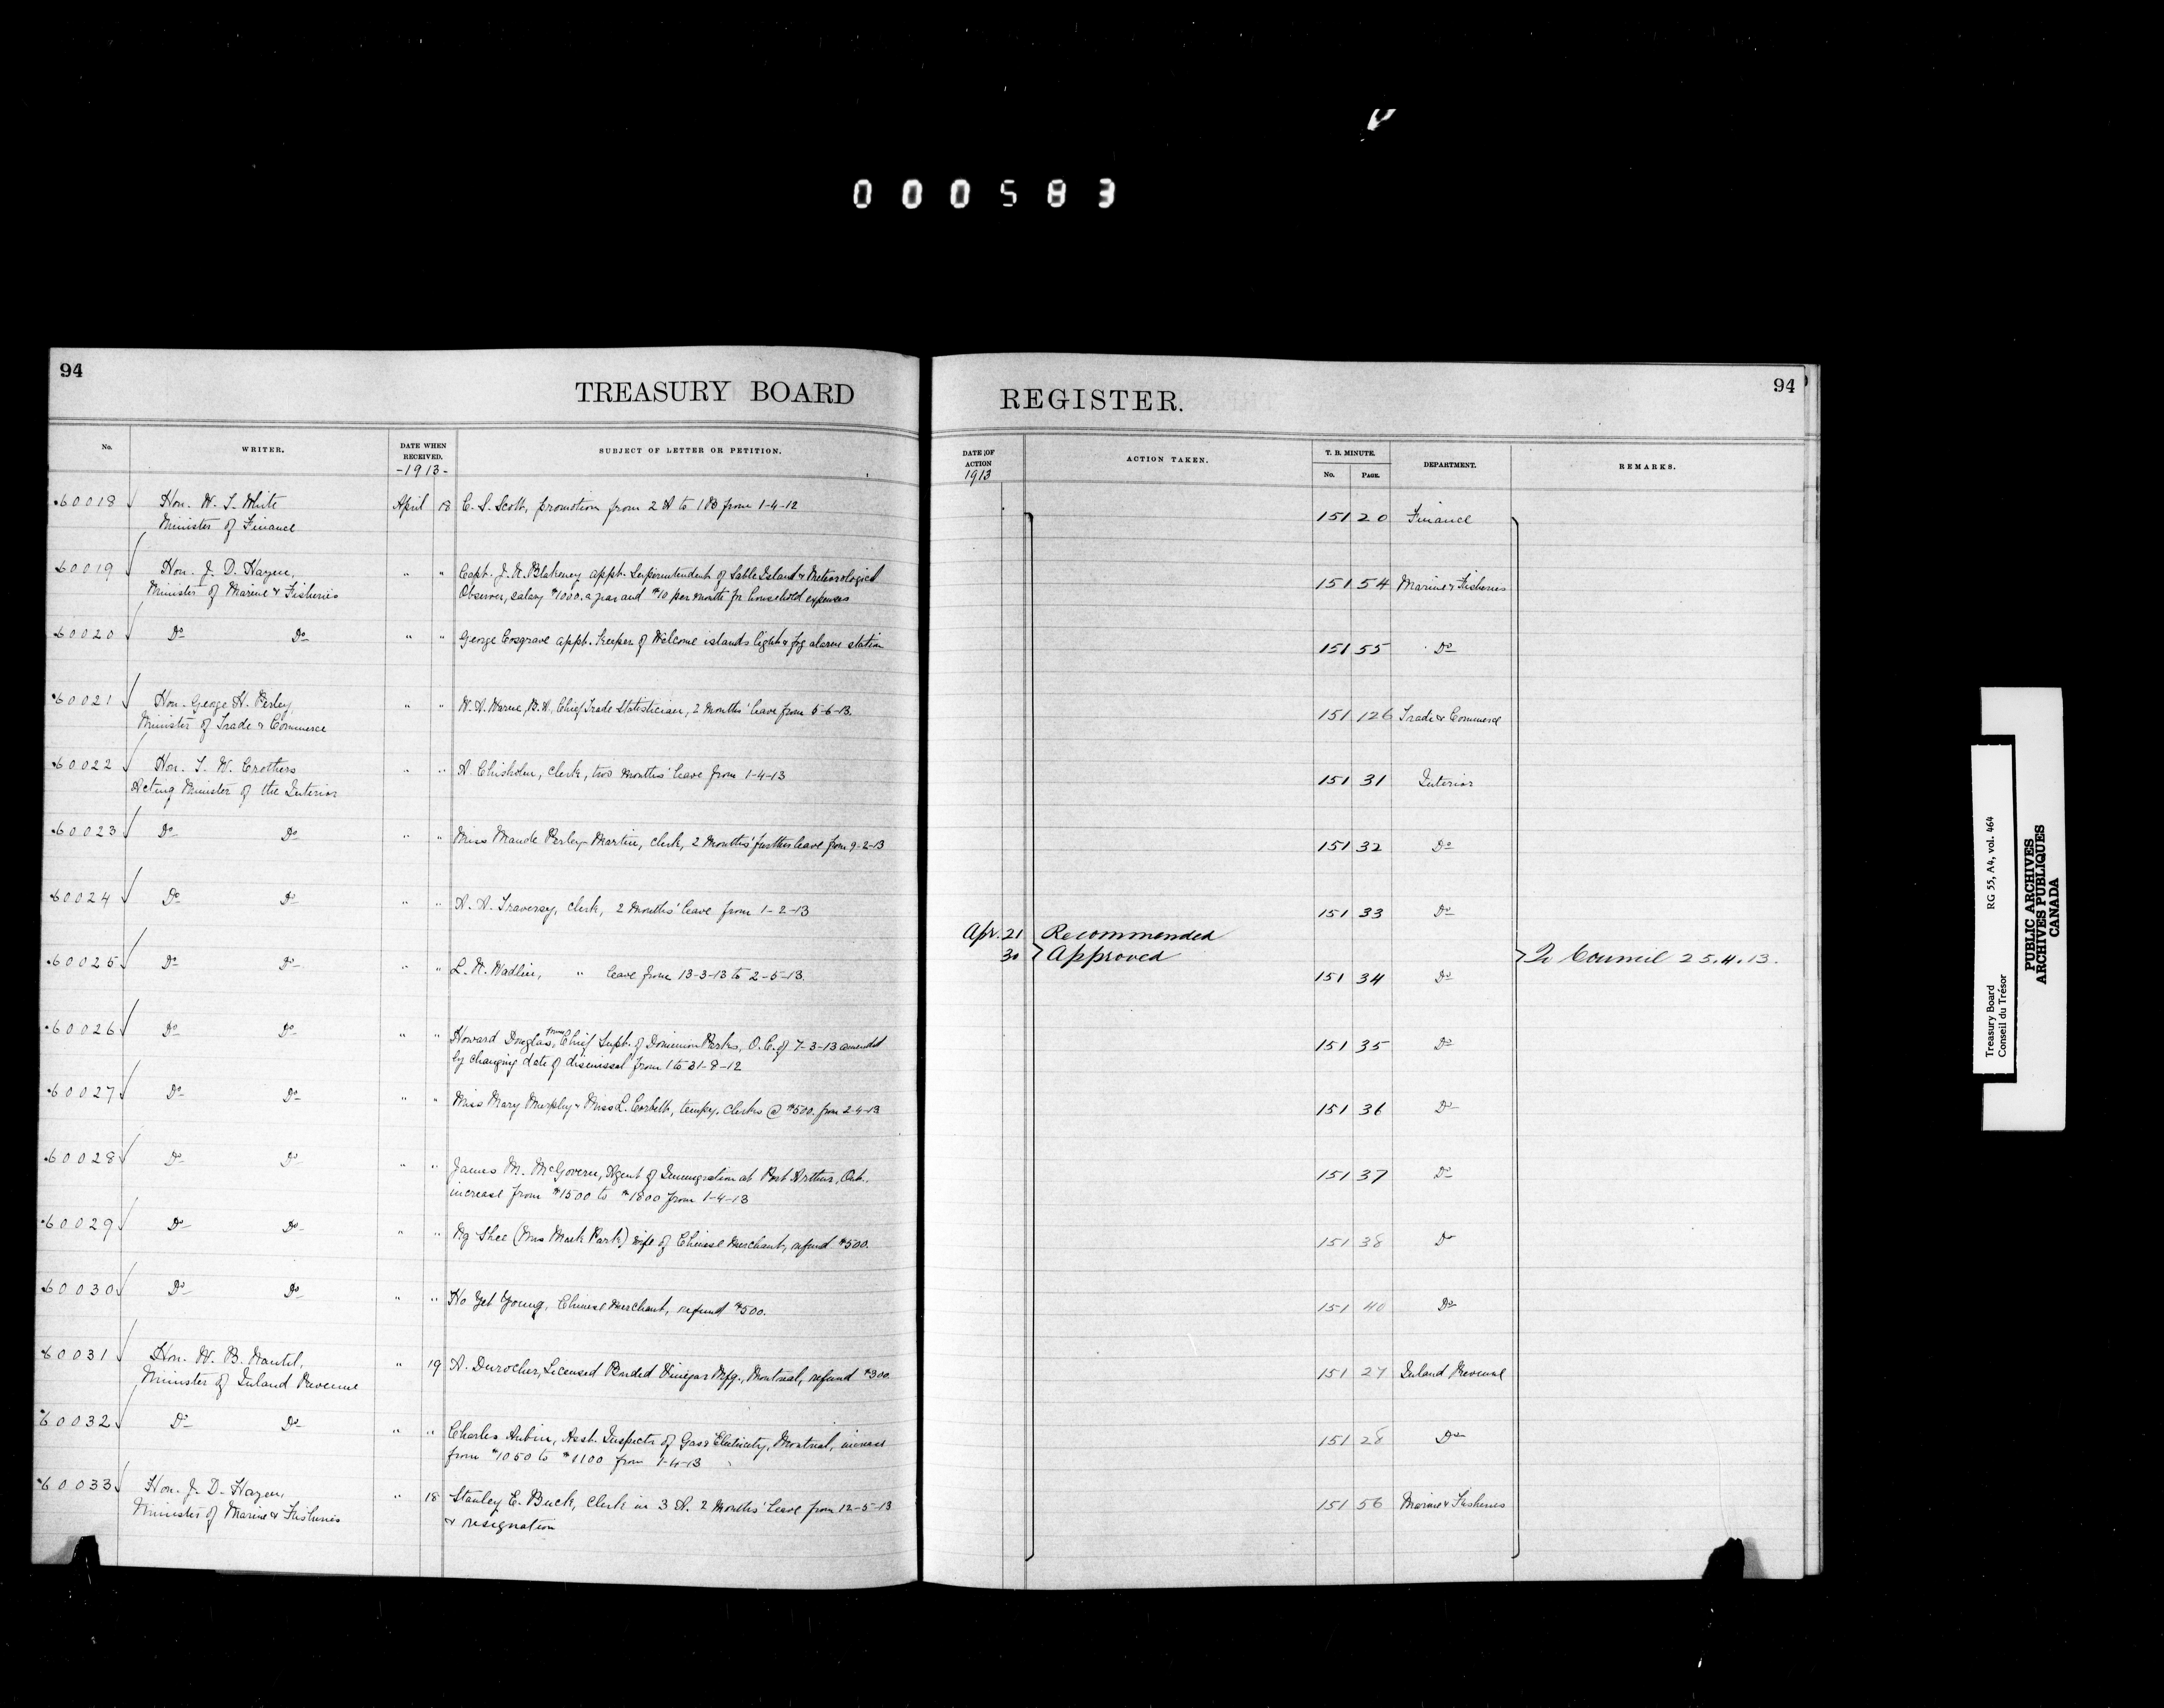 000583
94
TREASURY BOARD
REGISTER.
94
No.
WRITER.
DATE WHEN RECEIVED.
-1913-
SUBJECT OF LETTER OR PETITION.
DATE OF ACTION
1913
ACTION TAKEN.
T. B. MINUTE.
No.
PAGE.
DEPARTMENT.
REMARKS.
60018 Hon. W. T. White April 18 C. S. Scott, promotion from 2 A to 1 B from 1-4-12 151 20 Finance
Minister of Finance
60019 Hon. J. D. Hazen, " " Capt. J. R. Blakeney appt. Superintendent of Sable Island & Meteorological 151 54 Marine & Fisheries
Minister of Marine & Fisheries Observer, salary $1000. a year and $10 per month for household expenses
60020 Do Do " " George Cosgrave appt. Keeper of Welcome islands light & fog alarm station 151 55 Do
60021 Hon. George H. Perley, " " W. A. Warne, B.A., Chief Trade Statistician, 2 months' leave from 5-6-13. 151 126 Trade & Commerce
Minister of Trade & Commerce
60022 Hon. T. W. Crothers " " A. Chisholm, clerk, two months' leave from 1-4-13 151 31 Interior
Acting Minister of the Interior
60023 Do Do " " Miss Maude Perley-Martin, clerk, 2 months' further leave from 9-2-13 151 32 Do
60024 Do Do " " A. A. Traversy, clerk, 2 months' leave from 1-2-13 151 33 Do
Apr. 21 Recommended
30 Approved To Council 25.4.13.
60025 Do Do " " L. N. Wadlin, " leave from 13-3-13 to 2-5-13. 151 34 Do
60026 Do Do " " Howard Douglas, former Chief Supt. of Dominion Parks, O.C. of 7-3-13 amended 151 35 Do
by changing date of dismissal from 1 to 31-8-12
60027 Do Do " " Miss Mary Murphy & Miss L. Corbett, tempy. clerks @ $500. from 2-4-13 151 36 Do
60028 Do Do " " James M. McGovern, Agent of Immigration at Port Arthur, Ont. 151 37 Do
increase from $1500 to $1800 from 1-4-13
60029 Do Do " " Ng Shee (Mrs Mark Park) wife of Chinese Merchant, refund $500. 151 38 Do
60030 Do Do " " Ho Yet Young, Chinese Merchant, refund $500. 151 40 Do
60031 Hon. W. B. Nantel, " 19 A. Durocher, Licensed Bonded Vinegar Mfg., Montreal, refund $300. 151 27 Inland Revenue
Minister of Inland Revenue
60032 Do Do " " Charles Aubin, Asst. Inspector of Gas & Electricity, Montreal, increase 151 28 Do
from $1050 to $1100 from 1-4-13
60033 Hon. J. D. Hazen, " 18 Stanley E. Buck, Clerk in 3 A. 2 months' leave from 12-5-13 151 56 Marine & Fisheries
Minister of Marine & Fisheries & resignation
Treasury Board RG 55, A4, vol. 464
Conseil du Trésor
PUBLIC ARCHIVES
ARCHIVES PUBLIQUES
CANADA